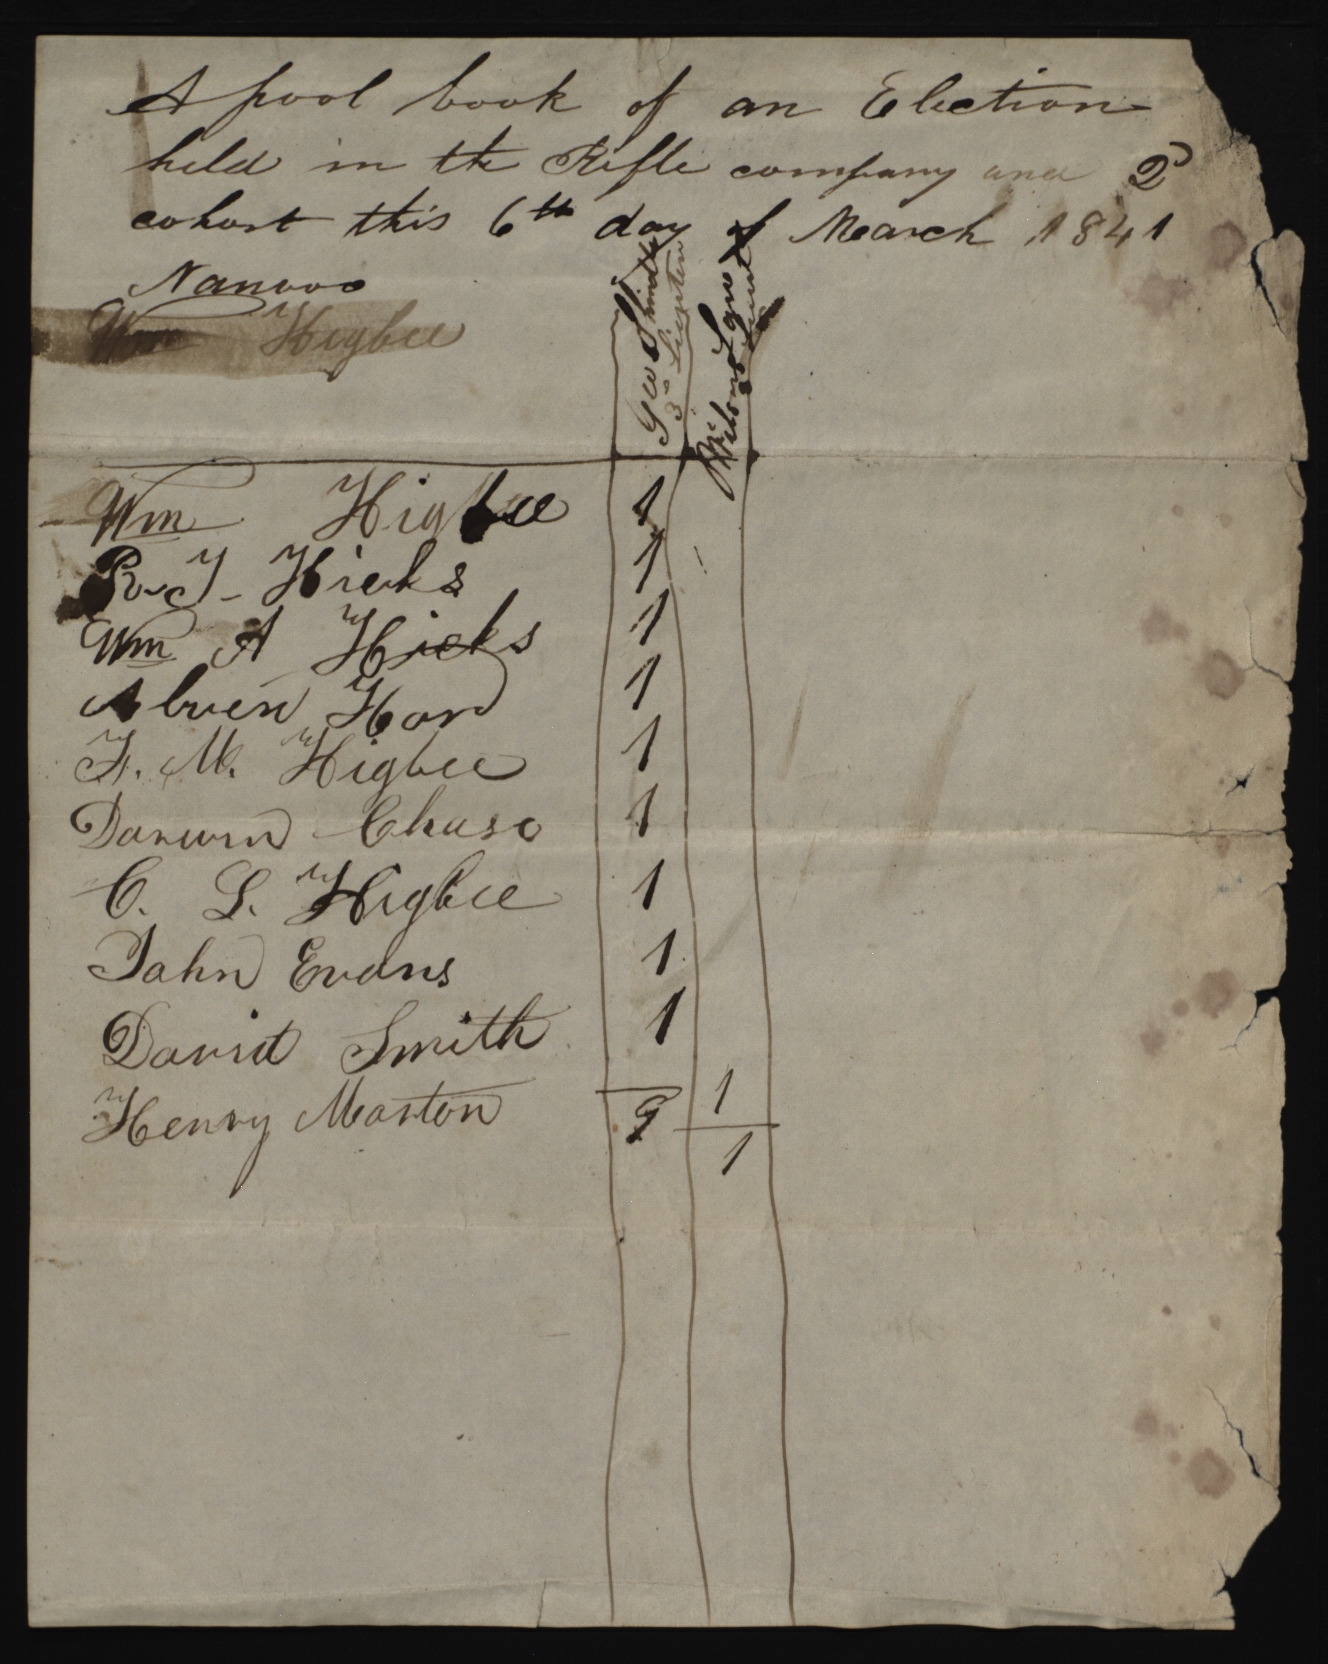 A pool book of an Election
held in the Rifle company and 2d
cohort this 6th day of March 1841
Nauvoo
Wm Higbee
Geo Smith
3d Lieuten
Wilson
Wm Higbee 1
R. J. Hicks 1
Wm A Hicks 1
Alven Hor 1
F. M. Higbee 1
Darwin Chase 1
C. L. Higbee 1
John Evans 1
David Smith 1
Henry Marton 1
9 1